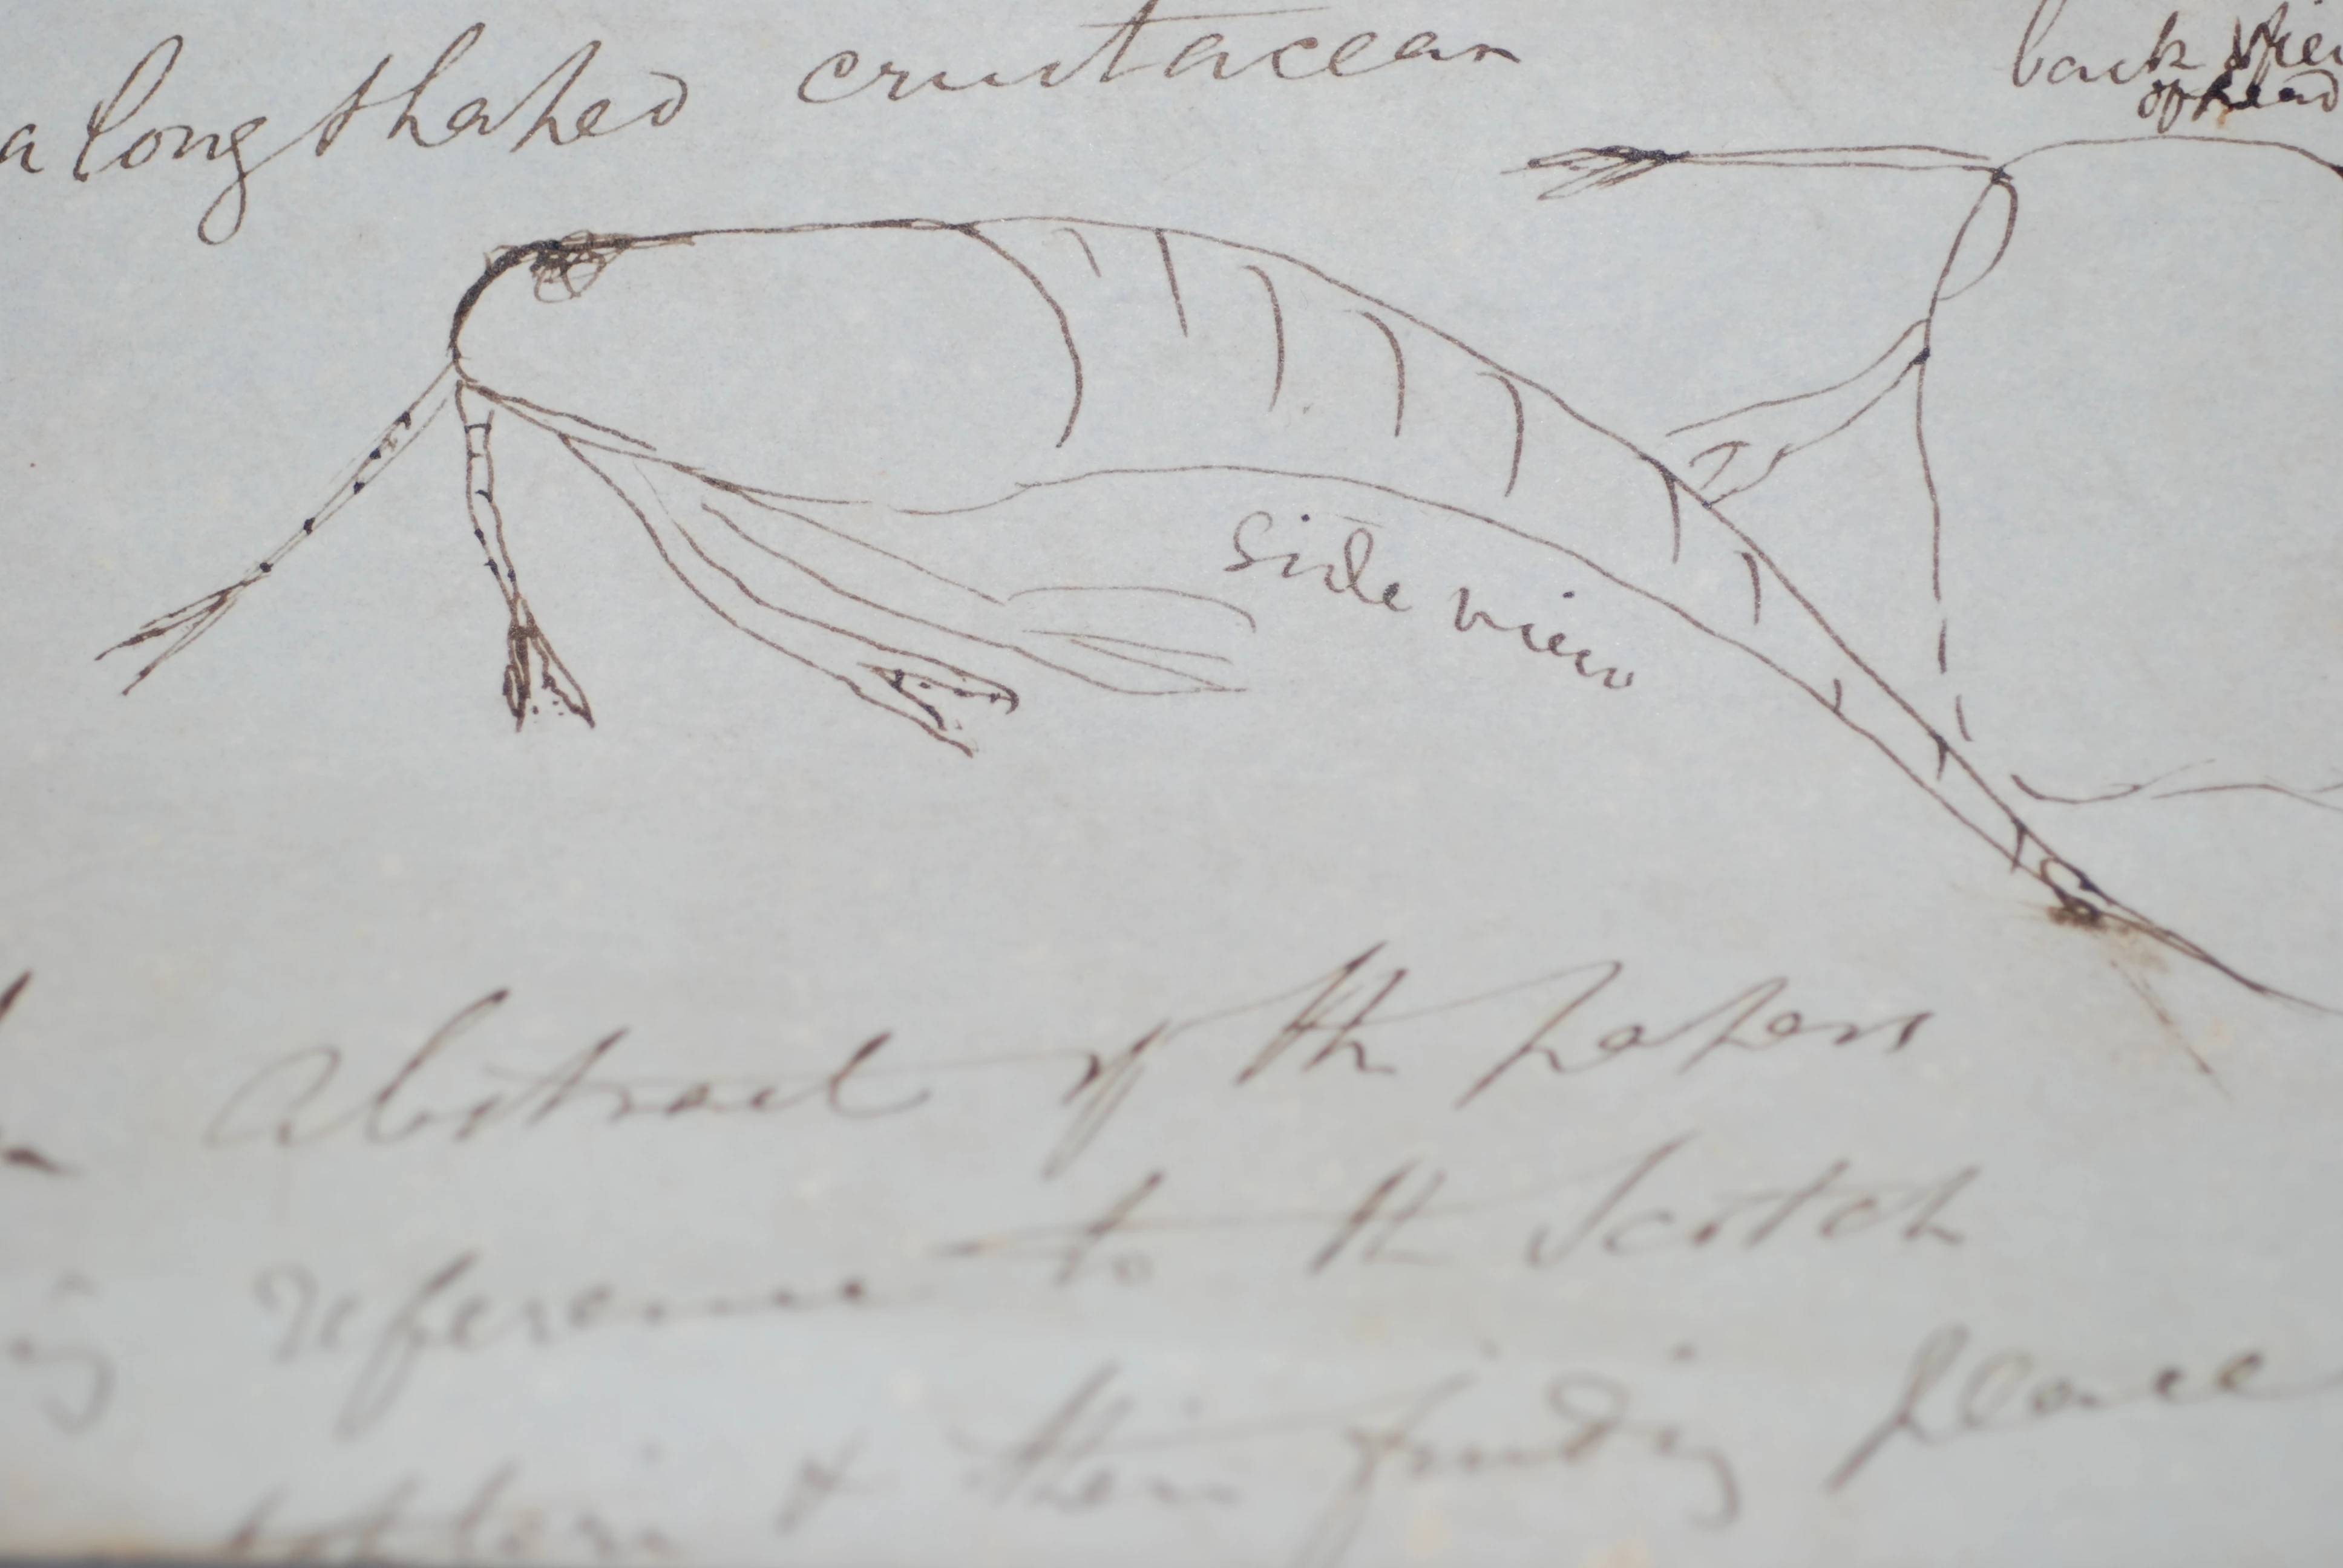 a long shaped crustacean
back view
of head
side view
abstract of the papers
reference to the Scotch
& their finding place